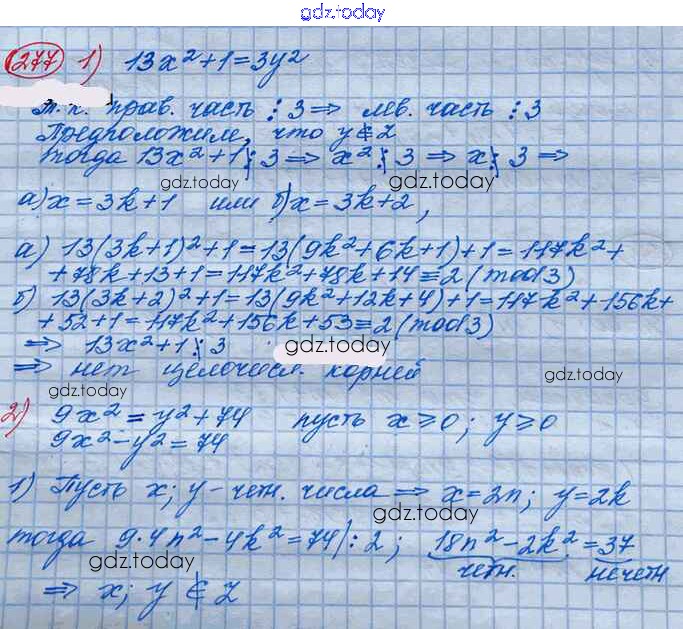 gdz.today
277 1) 13x²+1=3y²
Т.к. прав. часть ⋮ 3 ⇒ лев. часть ⋮ 3
Предположим, что y∉Z
тогда 13x²+1 ⋮ 3 ⇒ x² ⋮̸ 3 ⇒ x ⋮̸ 3 ⇒
gdz.today gdz.today
а) x = 3k+1 или б) x = 3k+2,
gdz.today
а) 13(3k+1)²+1=13(9k²+6k+1)+1=117k²+
+78k+13+1=117k²+78k+14≡2 (mod 3)
б) 13(3k+2)²+1=13(9k²+12k+4)+1=117k²+156k+
+52+1=117k²+156k+53≡2 (mod 3)
⇒ 13x²+1 ⋮̸ 3
gdz.today
⇒ нет целочисл. корней
gdz.today
gdz.today
2) 9x² = y²+74 пусть x⩾0; y⩾0
9x²-y²=74
gdz.today
1) Пусть x; y - четн. числа ⇒ x=2n; y=2k
gdz.today
тогда 9·4n²-4k²=74 |:2; 18n²-2k²=37
gdz.today
четн. нечетн
⇒ x; y ∉ Z
gdz.today